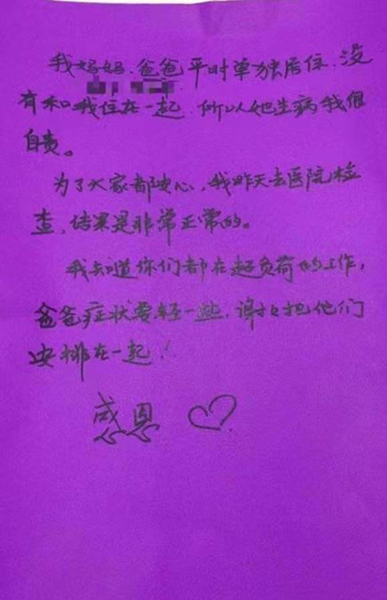 我妈妈、爸爸平时单独居住,没
有和我住在一起,所以她生病我很
自责。
为了大家都安心,我昨天去医院检
查,结果是非常正常的。
我知道你们都在超负荷的工作,
爸爸症状要轻一些,谢谢把他们
安排在一起!
感恩